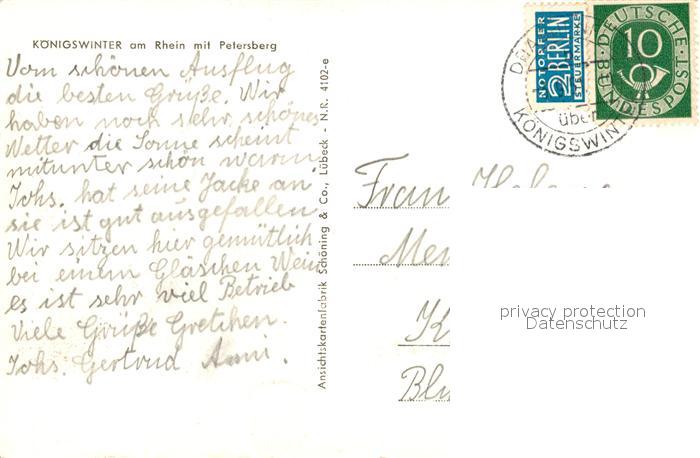 KÖNIGSWINTER am Rhein mit Petersberg
Vom schönen Ausflug
die besten Grüße. Wir
haben noch sehr schönes
Wetter die Sonne scheint
mitunter schön warm.
Johs. hat seine Jacke an
sie ist gut ausgefallen.
Wir sitzen hier gemütlich
bei einem Gläschen Wein
es ist sehr viel Betrieb
Viele Grüße Gretchen.
Johs. Gertrud Anni.
Ansichtskartenfabrik Schöning & Co., Lübeck - N.R. 4102-e
NOTOPFER
2 BERLIN
STEUERMARKE
DEUTSCHE
10
BUNDESPOST
über
KÖNIGSWINT
Frau
privacy protection
Datenschutz